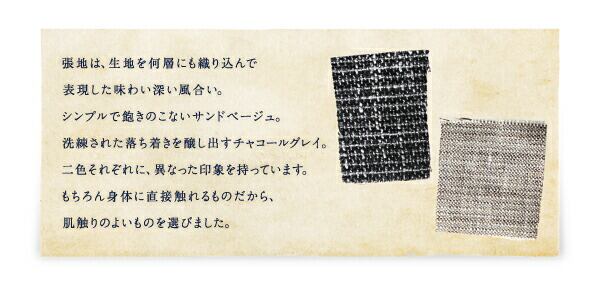 張地は、生地を何層にも織り込んで
表現した味わい深い風合い。
シンプルで飽きのこないサンドベージュ。
洗練された落ち着きを醸し出すチャコールグレイ。
二色それぞれに、異なった印象を持っています。
もちろん身体に直接触れるものだから、
肌触りのよいものを選びました。